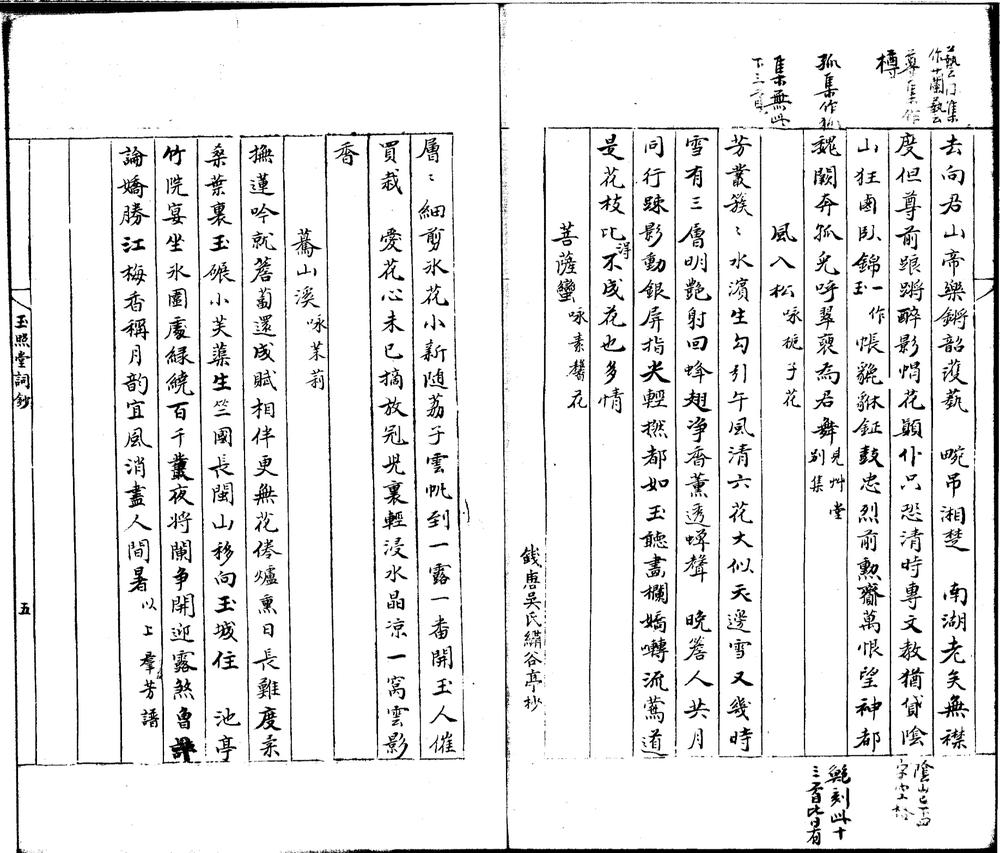 去向君山帝樂鏘韶濩蓺　畹弔湘楚　南湖老矣無襟
度但尊前踉蹡醉影帽花顛仆只恐清時專文教猶貸陰
山狂鹵臥錦一作玉帳貔貅鉦鼓忠烈前勲齎萬恨望神都
魏闕奔狐兔呼翠裒為君舞見艸堂别集
風入松詠梔子花
芳叢簇〻水濱生勾引午風清六花大似天邊雪又幾時
雪有三層明艷射回蜂翅净香薰透蟬聲　晚簷人共月
同行踈影動銀屏指尖輕撚都如玉聽畫欄嬌囀流鶯道
是花枝比得不成花也多情
菩薩蠻詠素馨花
層〻細剪氷花小新随荔子雲帆到一露一番開玉人催
買栽　愛花心未已摘放冠兒裏輕浸水晶凉一窩雲影
香
蓦山溪咏茉莉
撫蓮吟就薝蔔還成賦相伴更無花倦爐熏日長難度柔
桑葉裏玉碾小芙蕖生竺國長閩山移向玉城住　池亭
竹院宴坐氷圍處綠繞百千叢夜將闌争開迎露煞曽評
論嬌勝江梅香稱月韵宜風消盡人間暑以上羣芳譜
尊集作
樽
狐集作
集無此
下三首
陰山已下四
鮑刻此十
三首比日有
錢唐吳氏繡谷亭抄
玉照堂詞鈔
五